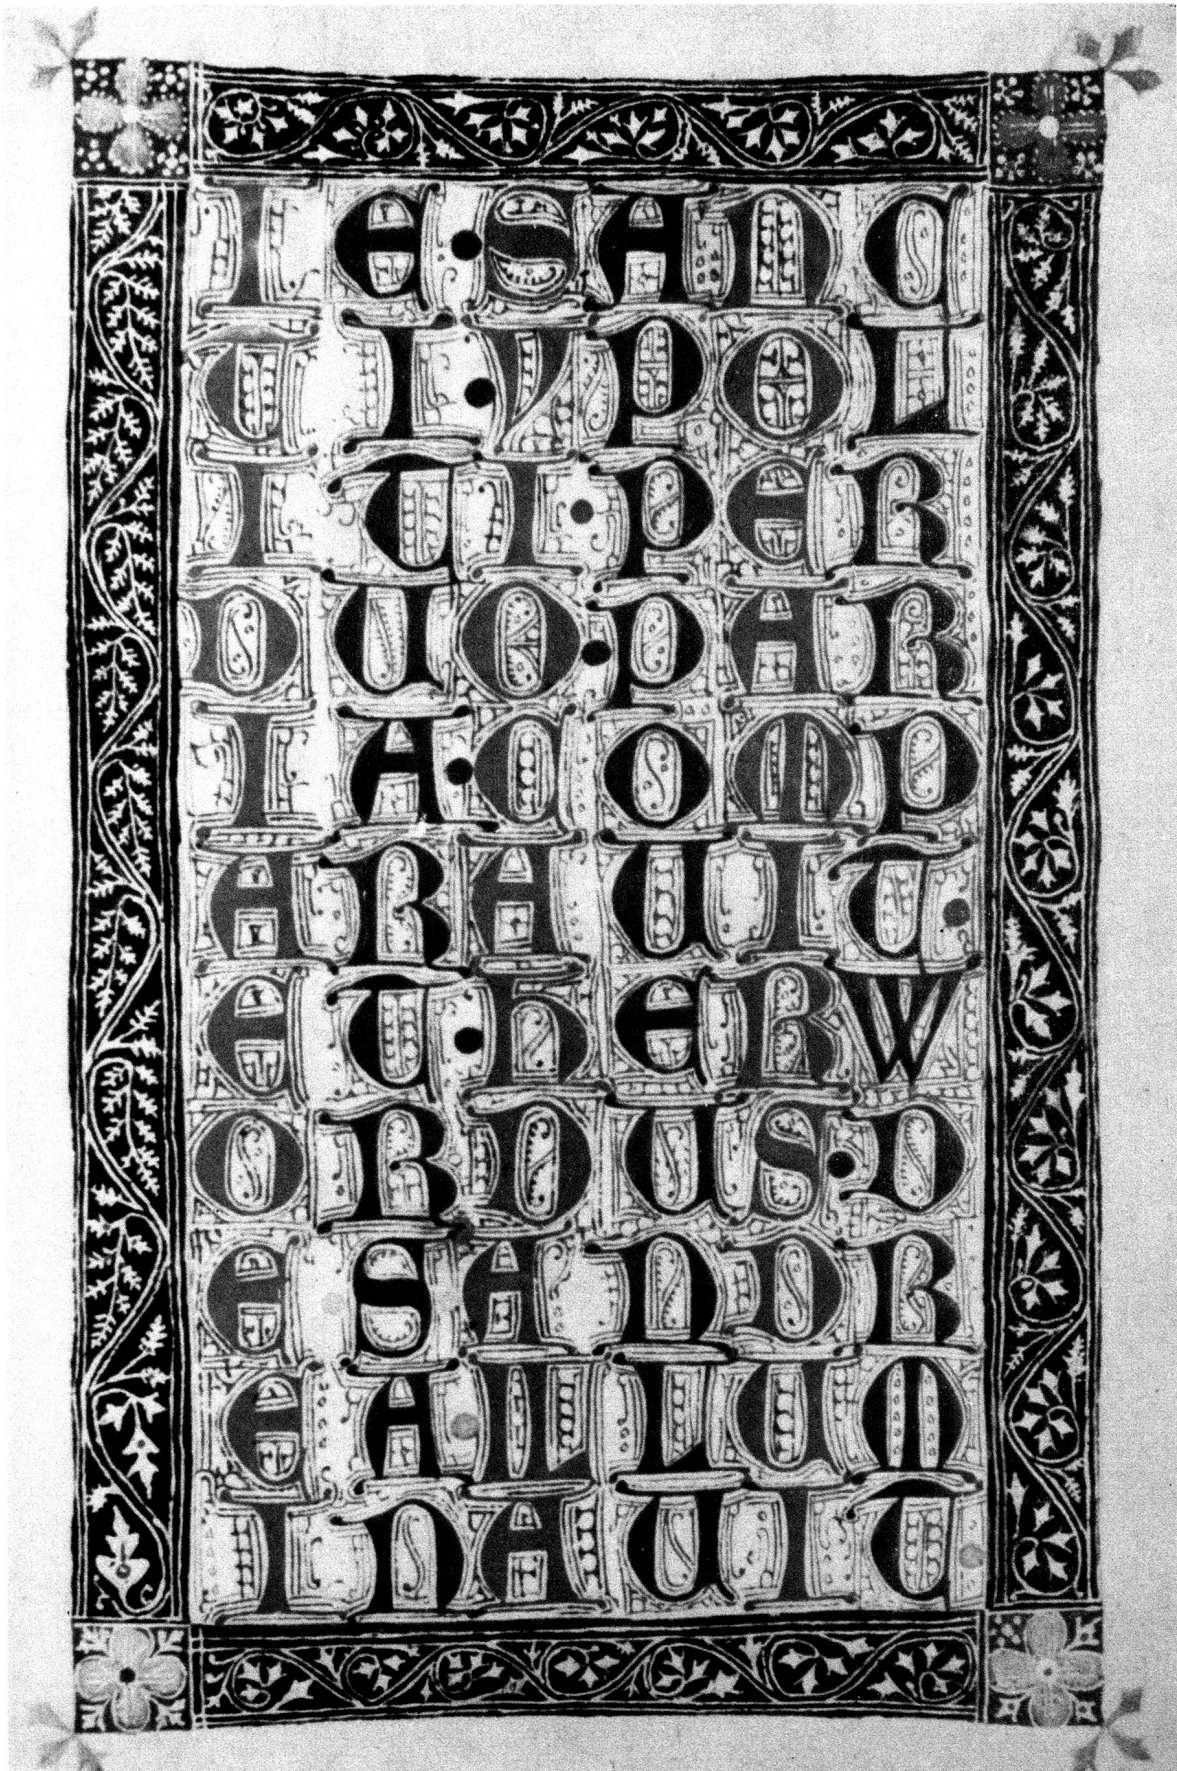 IE·SANC
TI·YPOL
ITI·PER
DUO·PAR
IA·COMP
ARAUIT·
ET·HERW
ORDUS·D
E·SANDR
EA·ILLUM
INAUIT·